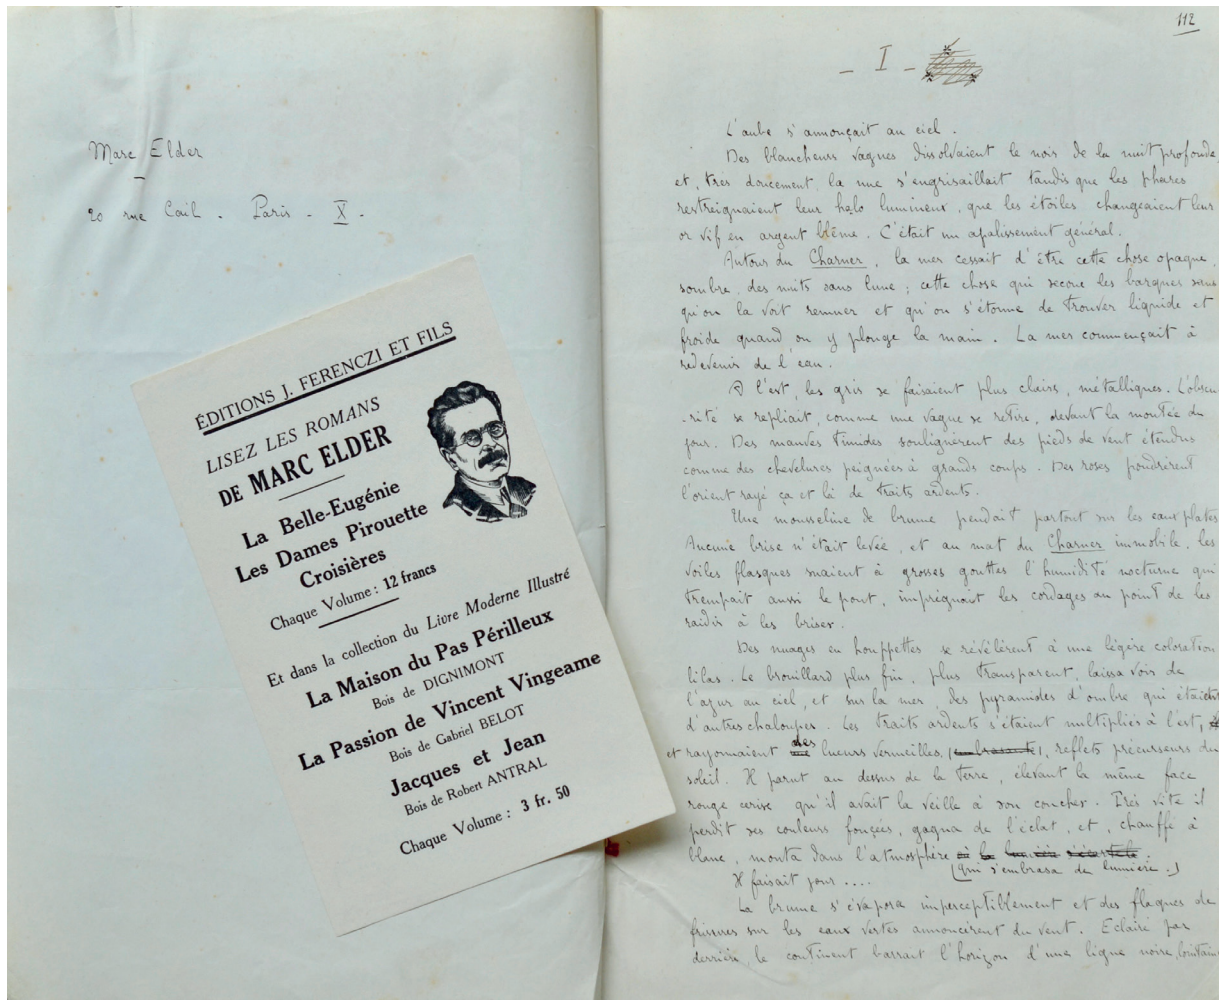 Marc Elder
20 rue Cail. Paris. X.
ÉDITIONS J. FERENCZI ET FILS
LISEZ LES ROMANS
DE MARC ELDER
La Belle-Eugénie
Les Dames Pirouette
Croisières
Chaque Volume : 12 francs
Et dans la collection du Livre Moderne Illustré
La Maison du Pas Périlleux
Bois de DIGNIMONT
La Passion de Vincent Vingeame
Bois de Gabriel BELOT
Jacques et Jean
Bois de Robert ANTRAL
Chaque Volume : 3 fr. 50
112
- I -
L'aube s'annonçait au ciel.
Des blancheurs vagues dissolvaient le noir de la nuit profonde
et, très doucement, la nue s'engrisaillait tandis que les phares
restreignaient leur halo lumineux, que les étoiles changeaient leur
or vif en argent blême. C'était un apalissement général.
Autour du Charner, la mer cessait d'être cette chose opaque,
sombre, des nuits sans lune ; cette chose qui secoue les barques sans
qu'on la voit remuer et qu'on s'étonne de trouver liquide et
froide quand on y plonge la main. La mer commençait à
redevenir de l'eau.
A l'est, les gris se faisaient plus clairs, métalliques. L'obscu
-rité se repliait, comme une vague se retire, devant la montée du
jour. Des mauves timides soulignèrent des pieds de vent étendus
comme des chevelures peignées à grands coups. Des roses poudrèrent
l'orient rayé ça et là de traits ardents.
Une mousseline de brume pendait partout sur les eaux plates
Aucune brise n'était levée, et au mat du Charner immobile, les
voiles flasques suaient à grosses gouttes l'humidité nocturne qui
trempait aussi le pont, imprégnait les cordages au point de les
raidir à les briser.
Des nuages en houppettes se révélèrent à une légère coloration
lilas. Le brouillard plus fin, plus transparent, laissa voir de
l'azur au ciel, et sur la mer, des pyramides d'ombre qui étaient
d'autres chaloupes. Les traits ardents s'étaient multipliés à l'est,
et rayonnaient des lueurs vermeilles, reflets précurseurs du
soleil. Il parut au dessus de la terre, élevant la même face
rouge cerise qu'il avait la veille à son coucher. Très vite il
perdit ses couleurs foncées, gagna de l'éclat, et, chauffé à
blanc, monta dans l'atmosphère
(qui s'embrasa de lumière.)
Il faisait jour....
La brume s'évapora imperceptiblement et des flaques de
frissons sur les eaux vertes annoncèrent du vent. Eclairé par
derrière, le continent barrait l'horizon d'une ligne noire, lointaine